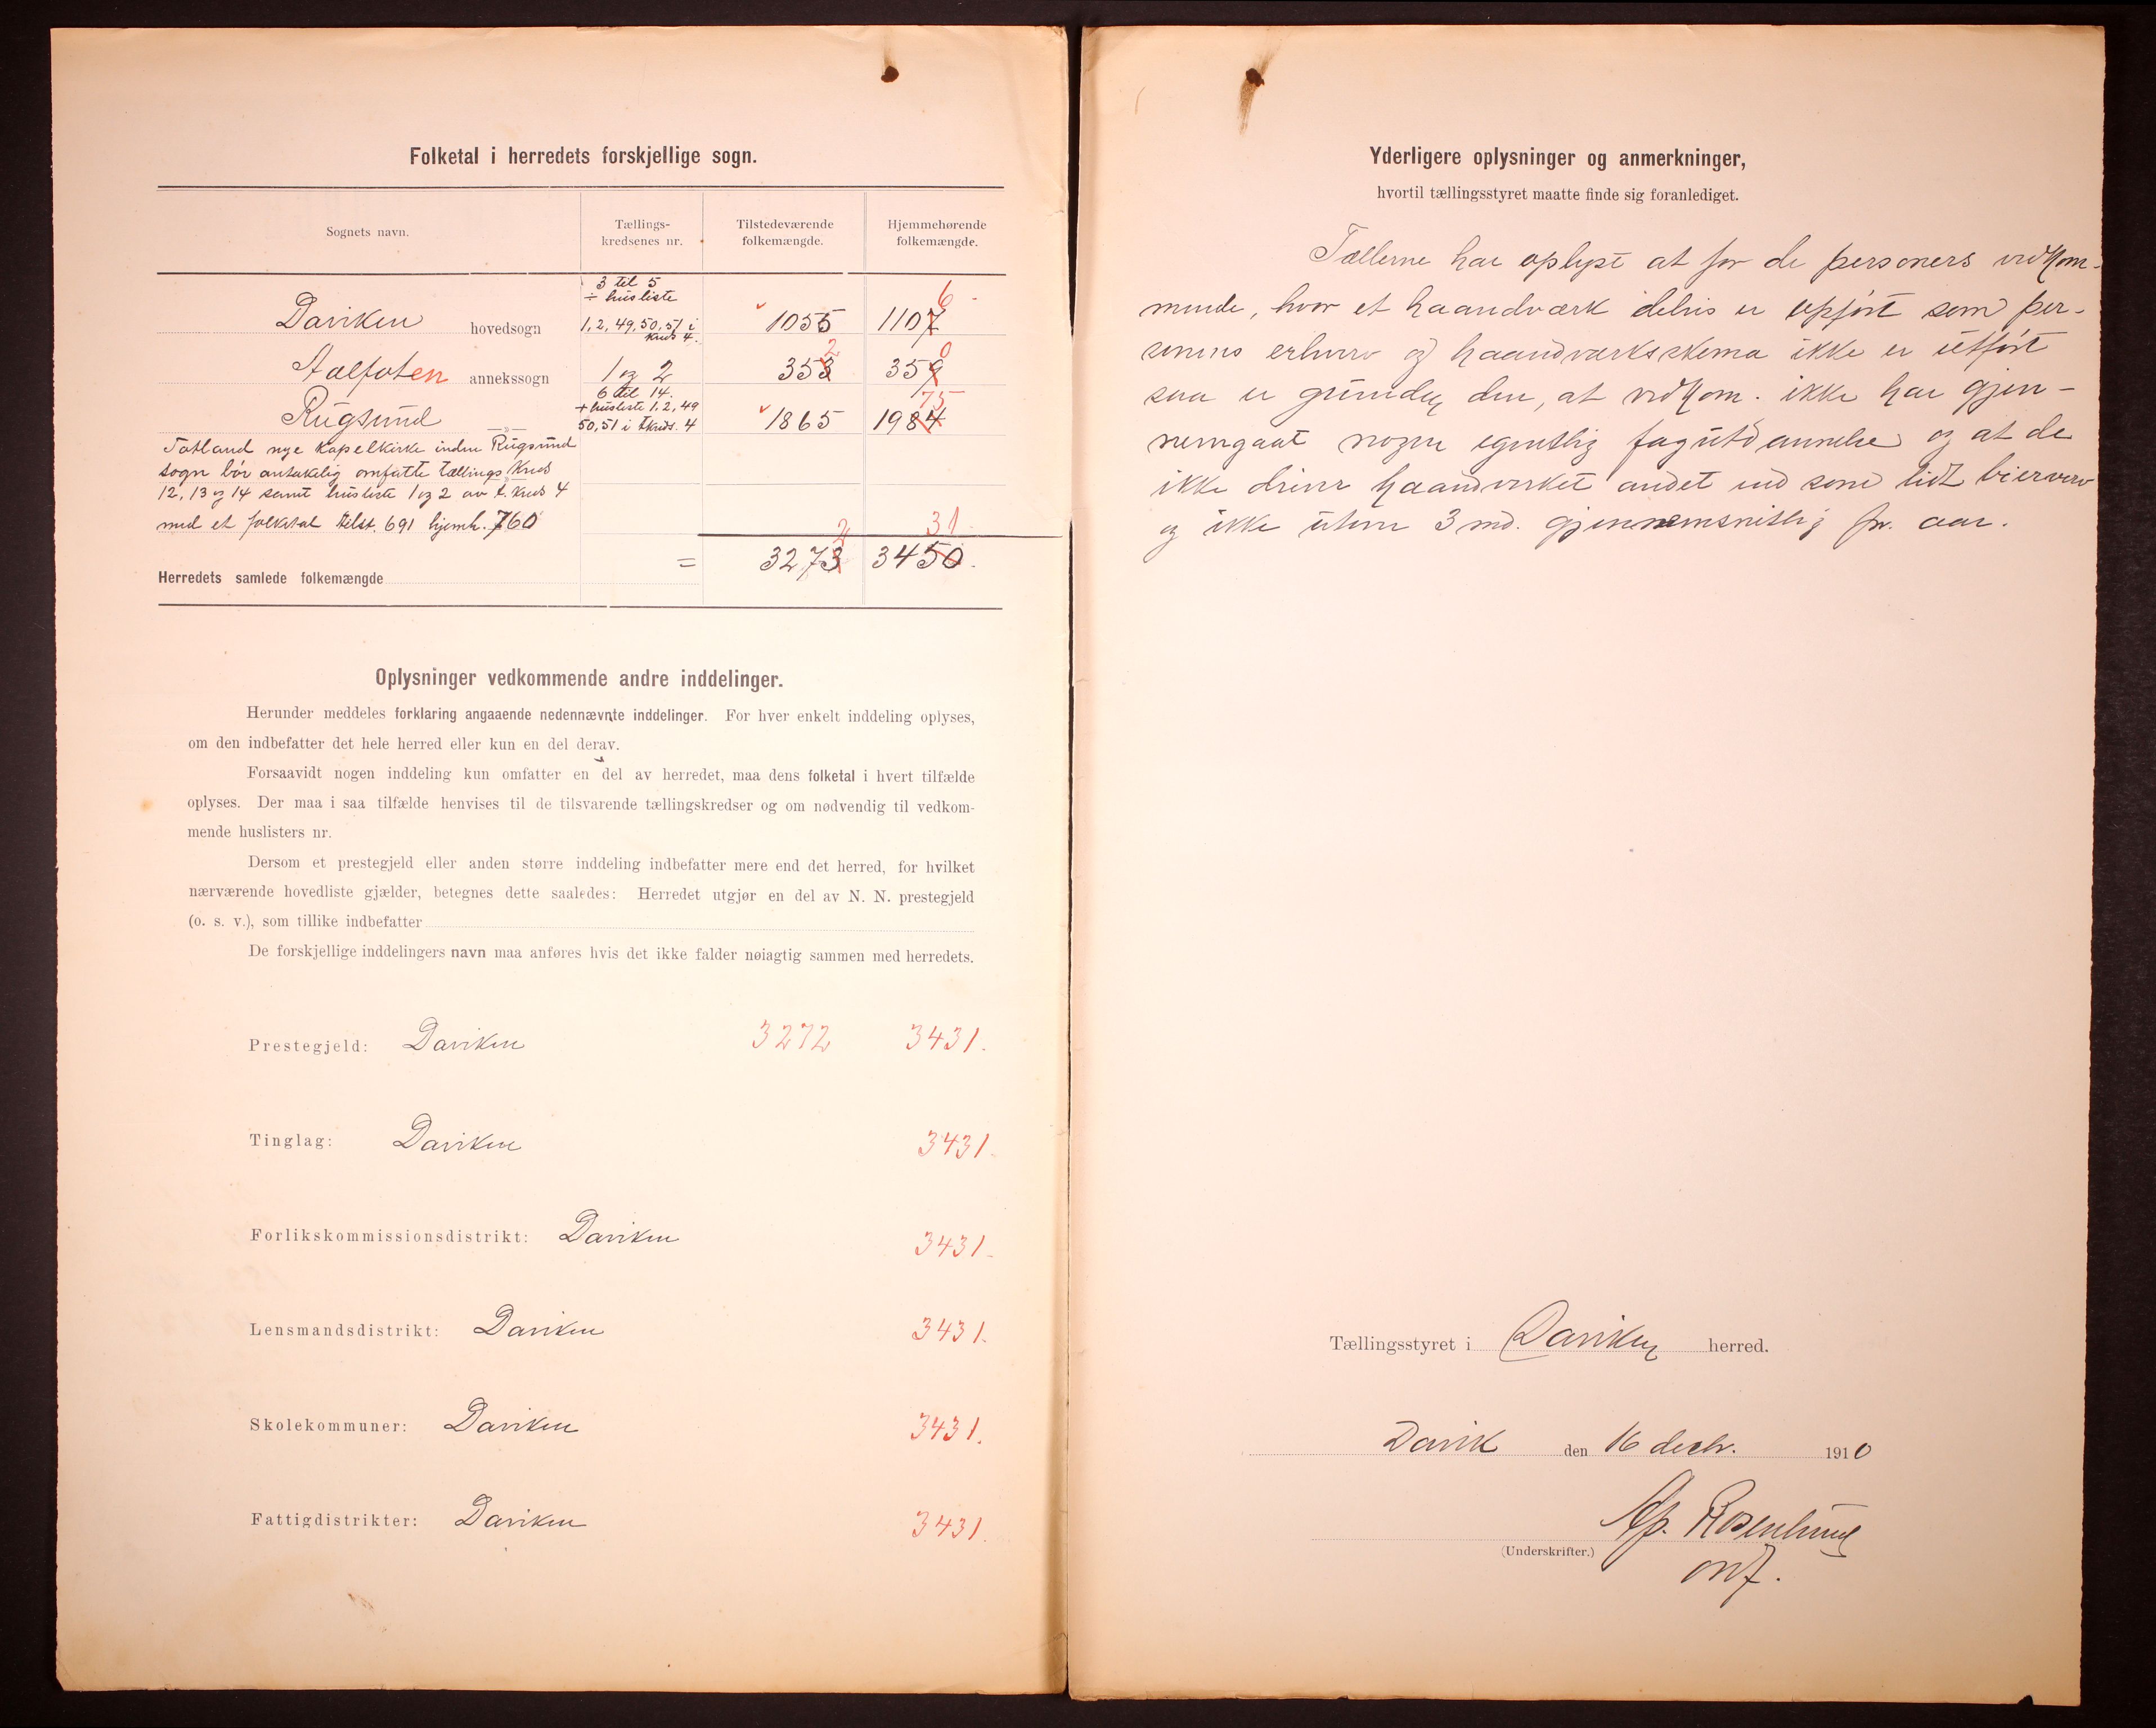 Folketal i herredets forskjellige sogn.
Sognets navn.
Tællings-
kredsenes nr.
Tilstedeværende
folkemængde.
Hjemmehørende
folkemængde.
3 til 5
÷ husliste
6
Daviken hovedsogn 1, 2, 49, 50, 51 i 1055 1107
Kreds 4.
2 0
Aalfoten annekssogn 1 og 2 353 359
6 til 14. 75
+ husliste 1, 2, 49
Rugsund —„— 50, 51 i tkreds. 4 1865 1984
Totland nye Kapelkirke inden Rugsund
sogn bør antakelig omfatte tællings Kreds
12, 13 og 14 samt husliste 1 og 2 av t. Kreds 4
med et folketal tilst. 691 hjemh. 760
2 31
Herredets samlede folkemængde = 3273 3450.
Oplysninger vedkommende andre inddelinger.
Herunder meddeles forklaring angaaende nedennævnte inddelinger. For hver enkelt inddeling oplyses,
om den indbefatter det hele herred eller kun en del derav.
Forsaavidt nogen inddeling kun omfatter en del av herredet, maa dens folketal i hvert tilfælde
oplyses. Der maa i saa tilfælde henvises til de tilsvarende tællingskredser og om nødvendig til vedkom-
mende huslisters nr.
Dersom et prestegjeld eller anden større inddeling indbefatter mere end det herred, for hvilket
nærværende hovedliste gjælder, betegnes dette saaledes: Herredet utgjør en del av N. N. prestegjeld
(o. s. v.), som tillike indbefatter
De forskjellige inddelingers navn maa anføres hvis det ikke falder nøiagtig sammen med herredets.
Prestegjeld: Daviken 3272 3431.
Tinglag: Daviken 3431.
Forlikskommissionsdistrikt: Daviken 3431.
Lensmandsdistrikt: Daviken 3431.
Skolekommuner: Daviken 3431.
Fattigdistrikter: Daviken 3431.
Yderligere oplysninger og anmerkninger,
hvortil tællingsstyret maatte finde sig foranlediget.
Tællerne har oplyst at for de personers vedkom-
mende, hvor et haandværk delvis er opført som per-
sonens erhverv og haandværksskema ikke er utført
saa er grunden den, at vedkom. ikke har gjen-
nemgaat nogen egentlig faguddannelse og at de
ikke driver haandverket andet end som lidt bierverv
og ikke utover 3 md. gjennemsnitlig pr. aar.
Tællingsstyret i Daviken herred.
Davik den 16 decbr. 1910
Ap. Rosenlund
(Underskrifter.)
ordf.